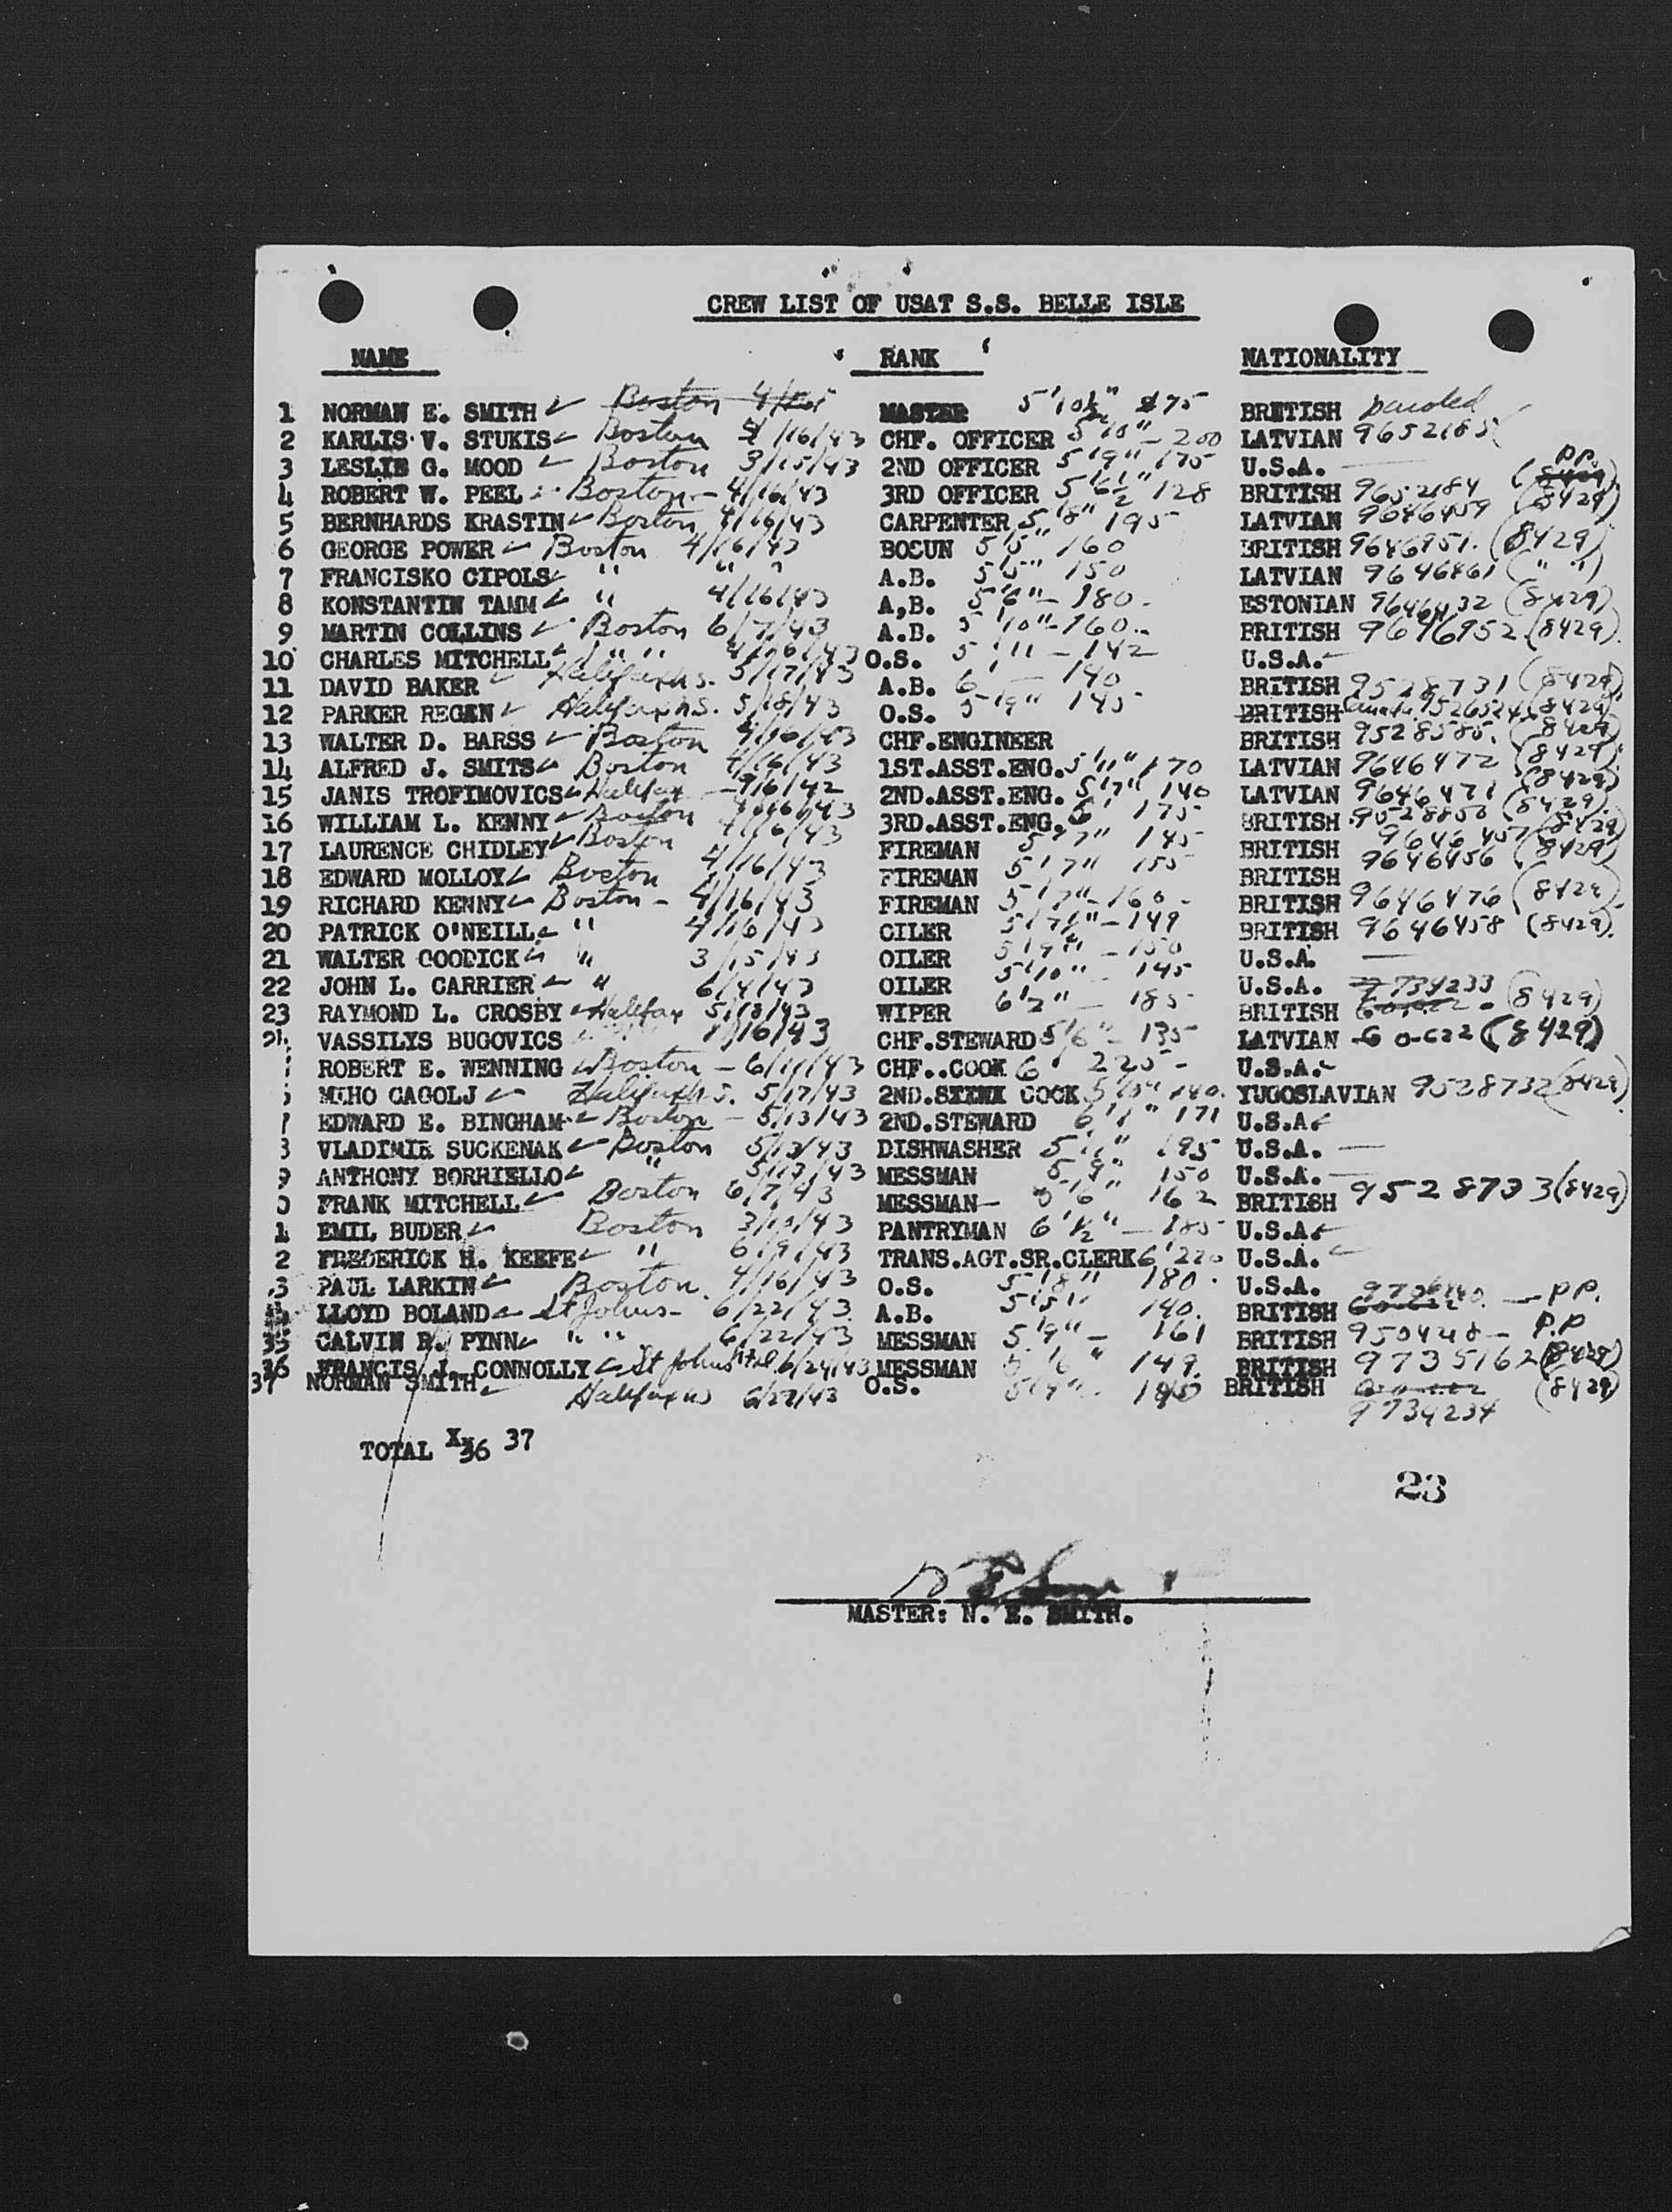 CREW LIST OF USAT S.S. BELLE ISLE
NAME RANK NATIONALITY
1 NORMAN E. SMITH Boston MASTER 5'10½" 175 BRITISH
2 KARLIS V. STUKIS Boston 4/16/43 CHF. OFFICER 5'10" - 200 LATVIAN 9652185
3 LESLIE G. MOOD Boston 3/15/43 2ND OFFICER 5'9" 175 U.S.A. —
4 ROBERT W. PEEL Boston - 4/16/43 3RD OFFICER 5'6½" 128 BRITISH 9652184 PP.
5 BERNHARDS KRASTIN Boston 4/16/43 CARPENTER 5'8" 195 LATVIAN 9646459 (8429)
6 GEORGE POWER Boston 4/16/43 BOSUN 5'5" 160 BRITISH 9646951. (8429)
7 FRANCISKO CIPOLS " " A.B. 5'5" 150 LATVIAN 9646461 ( " " )
8 KONSTANTIN TAMM " 4/16/43 A,B. 5'6" - 180. ESTONIAN 9646432 (8429)
9 MARTIN COLLINS Boston 6/7/43 A.B. 5'10" - 160 BRITISH 9646952 (8429)
10 CHARLES MITCHELL " " 4/16/43 O.S. 5'11 - 142 U.S.A.
11 DAVID BAKER Halifax n.s. 5/17/43 A.B. 6' - 140 BRITISH 9528731 (8429)
12 PARKER REGAN Halifax n.s. 5/18/43 O.S. 5'9" 145 BRITISH Canada 9526524 (8429)
13 WALTER D. BARSS Boston 4/16/43 CHF.ENGINEER BRITISH 9528585. (8429)
14 ALFRED J. SMITS Boston 4/16/43 1ST.ASST.ENG. 5'11" 170 LATVIAN 9646472 (8429)
15 JANIS TROFIMOVICS Halifax - 9/6/42 2ND.ASST.ENG. 5'7" 140 LATVIAN 9646471 (8429)
16 WILLIAM L. KENNY Boston 4/16/43 3RD.ASST.ENG. 6' 175 BRITISH 9528850 (8429)
17 LAURENCE CHIDLEY Boston 4/16/43 FIREMAN 5'7" 145 BRITISH 9646457 (8429)
18 EDWARD MOLLOY Boston 4/16/43 FIREMAN 5'7" 155 BRITISH 9646456 (8429)
19 RICHARD KENNY Boston - 4/16/43 FIREMAN 5'7" - 160 - BRITISH 9646476 (8429)
20 PATRICK O'NEILL " 4/16/43 OILER 5'7½" - 149 BRITISH 9646458 (8429).
21 WALTER GOODICK " 3/15/43 OILER 5'9" - 150 U.S.A. —
22 JOHN L. CARRIER " 6/4/43 OILER 5'10" - 145 U.S.A.
23 RAYMOND L. CROSBY Halifax 5/18/43 WIPER 6'2" - 185 BRITISH 9734233 (8429)
VASSILYS BUGOVICS 4/16/43 CHF.STEWARD 5'6" - 135 LATVIAN (8429)
ROBERT E. WENNING Boston - 6/11/43 CHF..COOK 6' 225 - U.S.A.
MIHO GAGOLJ Halifax n.s. 5/17/43 2ND. COOK 5'10" 140. YUGOSLAVIAN 9528732 (8429)
EDWARD E. BINGHAM Boston - 5/13/43 2ND.STEWARD 6'1" 171 U.S.A.
VLADIMIR SUCKENAK Boston 5/13/43 DISHWASHER 5'11" 195 U.S.A. —
9 ANTHONY BORRIELLO " 5/13/43 MESSMAN 5'9" 150 U.S.A. —
0 FRANK MITCHELL Boston 6/7/43 MESSMAN 5'6" 162 BRITISH 9528733 (8429)
1 EMIL BUDER Boston 3/15/43 PANTRYMAN 6'½" - 185 U.S.A.
2 FREDERICK H. KEEFE " 6/9/43 TRANS.AGT.SR.CLERK 6' 220 U.S.A.
3 PAUL LARKIN Boston. 4/16/43 O.S. 5'8" 180. U.S.A.
LLOYD BOLAND St Johns - 6/22/43 A.B. 5'5" 140. BRITISH — PP.
35 CALVIN R. PYNN " " 6/22/43 MESSMAN 5'9" - 161 BRITISH 950428 - P.P
36 FRANCIS J. CONNOLLY St Johns Nfld 6/24/43 MESSMAN 5'6" 149. BRITISH 9735162 (8429)
37 NORMAN SMITH Halifax ns 6/27/43 O.S. 5'9" - 140 BRITISH (8429)
9734234
TOTAL 36 37
23
MASTER: N. E. SMITH.